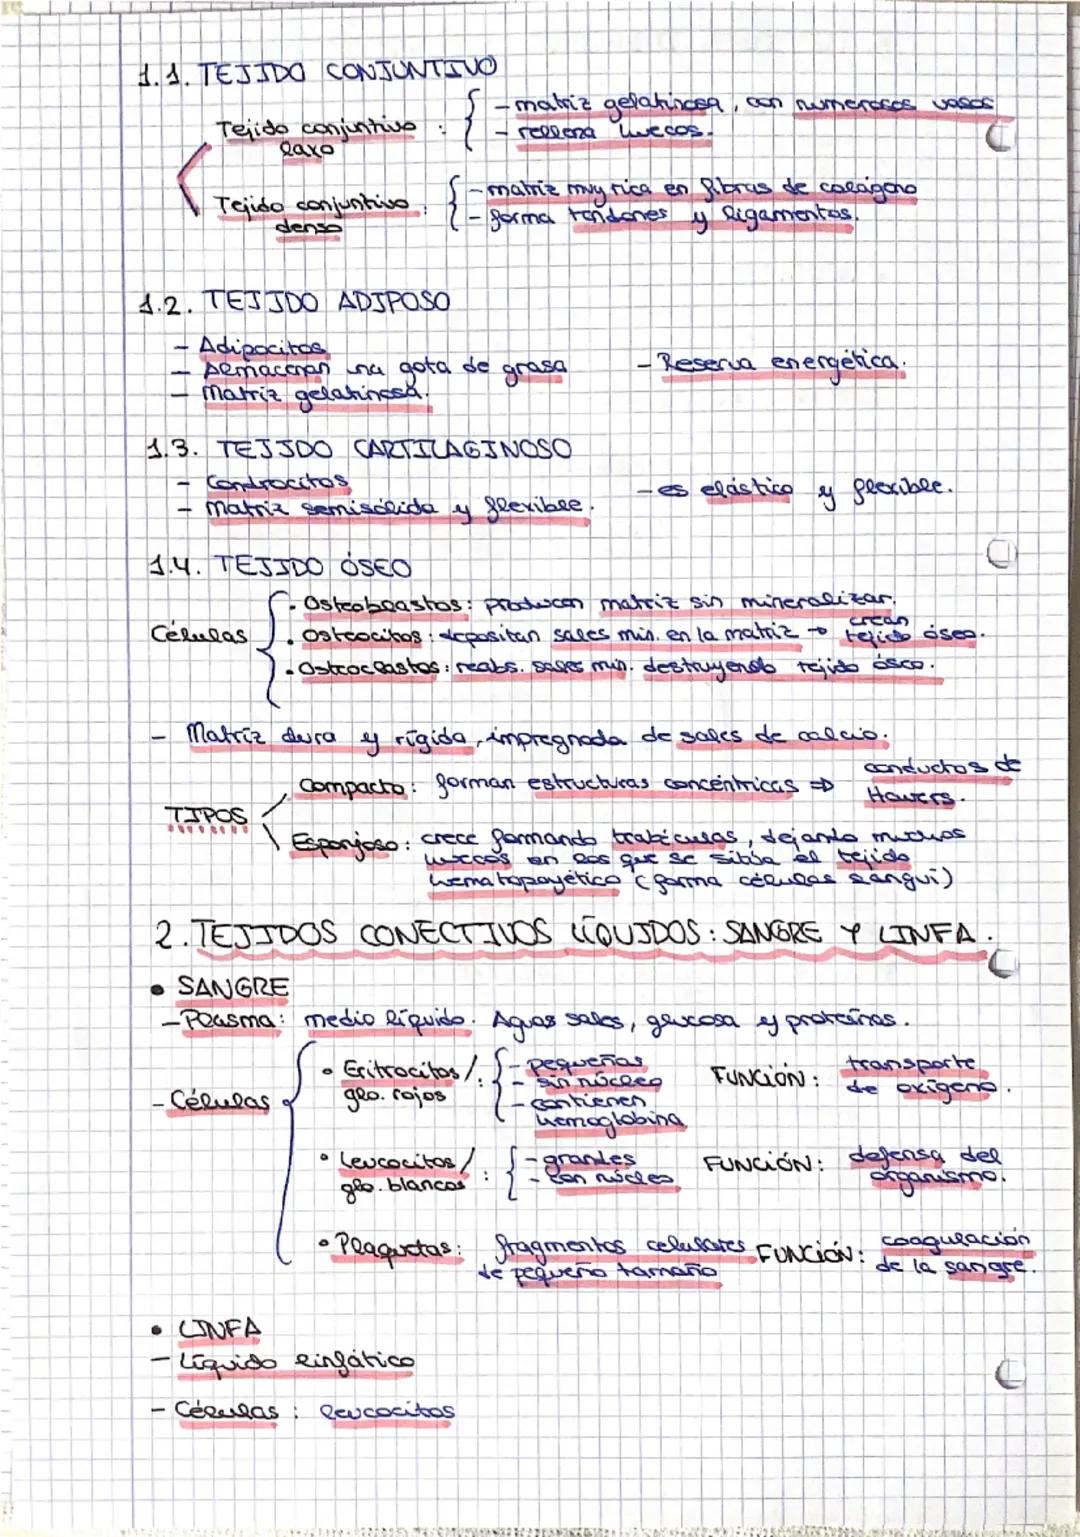 1.1. TEJIDO CONJUNTIVO
Tejido conjuntivo laxo : - matriz gelatinosa, con numerosos vasos
- rellena huecos.
Tejido conjuntivo denso : - matriz muy rica en fibras de colágeno
- forma tendones y ligamentos.
1.2. TEJIDO ADIPOSO
- Adipocitos
- Almacenan una gota de grasa - Reserva energética.
- Matriz gelatinosa.
1.3. TEJIDO CARTILAGINOSO
- Condrocitos - es elástico y flexible.
- Matriz semisólida y flexible.
1.4. TEJIDO ÓSEO
Células
· Osteoblastos: producen matriz sin mineralizar.
· Osteocitos: depositan sales min. en la matriz → crean tejido óseo.
· Ostroclastos: reabs. sales min. destruyendo tejido óseo.
- Matriz dura y rígida, impregnada de sales de calcio.
TIPOS
Compacto: forman estructuras concéntricas ⇒ conductos de Havers.
Esponjoso: crece formando trabéculas, dejando muchos
huecos en los que se sitúa el tejido
hematopoyético (forma células sangui)
2. TEJIDOS CONECTIVOS LÍQUIDOS: SANGRE Y LINFA.
• SANGRE
- Plasma: medio líquido. Aguas sales, glucosa y proteínas.
- Células
• Eritrocitos / glo. rojos : - pequeñas
- sin núcleo
- contienen hemoglobina
FUNCIÓN: transporte de oxígeno.
• Leucocitos / glo. blancos : - grandes
- con núcleo
FUNCIÓN: defensa del organismo.
• Plaquetas: fragmentos celulares de pequeño tamaño FUNCIÓN: coagulación de la sangre.
• LINFA
- Líquido linfático
- Células : leucocitos